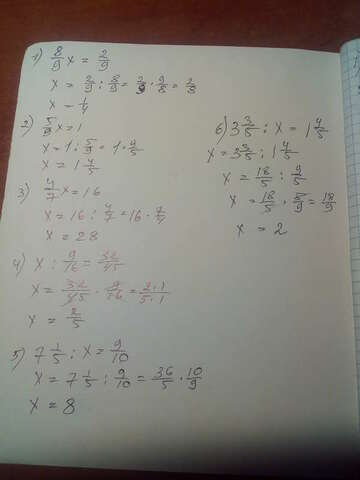 1) 8/9 x = 2/9
x = 2/9 : 8/9 = 2/9 · 9/8 = 2/8
x = 1/4
2) 5/9 x = 1
x = 1 : 5/9 = 1 · 9/5
x = 1 4/5
3) 4/7 x = 16
x = 16 : 4/7 = 16 · 7/4
x = 28
4) x : 9/16 = 32/45
x = 32/45 · 9/16 = 2·1/5·1
x = 2/5
5) 7 1/5 : x = 9/10
x = 7 1/5 : 9/10 = 36/5 · 10/9
x = 8
6) 3 3/5 : x = 1 4/5
x = 3 3/5 : 1 4/5
x = 18/5 : 9/5
x = 18/5 · 5/9 = 18/9
x = 2